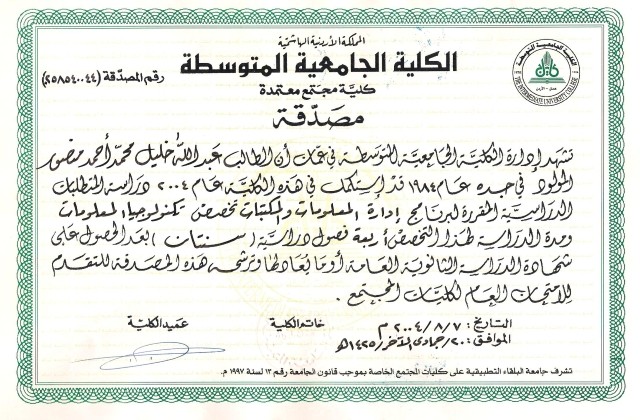 المملكة الأردنية الهاشمية
الكلية الجامعية المتوسطة
كلية مجتمع معتمدة
رقم المصدقة (٢٥٨٥٤٠٠٤٤)
مصدقة
الكلية الجامعية المتوسطة
عمان - الأردن
THE INTERMEDIATE UNIVERSITY COLLEGE
تشهد إدارة الكلية الجامعية المتوسطة في عمان أن الطالب عبدالله خليل محمد أحمد منصور
المولود في جده عام ١٩٨٤ قد استكمل في هذه الكلية عام ٢٠٠٤ دراسة المتطلبات
الدراسية المقررة لبرنامج إدارة المعلومات والمكتبات تخصص تكنولوجيا المعلومات
ومدة الدراسة لهذا التخصص أربعة فصول دراسية (سنتان) بعد الحصول على
شهادة الدراسة الثانوية العامة أو ما يعادلها وترشحه هذه المصدقة للتقدم
للامتحان العام لكليات المجتمع.
التاريخ: ٢٠٠٤/٨/٧ م
الموافق: ٢٠/جمادى الآخر/١٤٢٥هـ
خاتم الكلية
عميد الكلية
تشرف جامعة البلقاء التطبيقية على كليات المجتمع الخاصة بموجب قانون الجامعة رقم ١٣ لسنة ١٩٩٧ م.